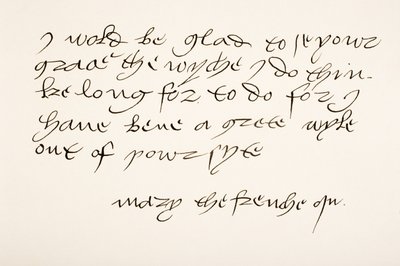 I wold be glad to se yowr
grace the wyche I do thin-
ke long for to do for I
haue bene a grete wyle
out of powr syte
mary the frenche qu.